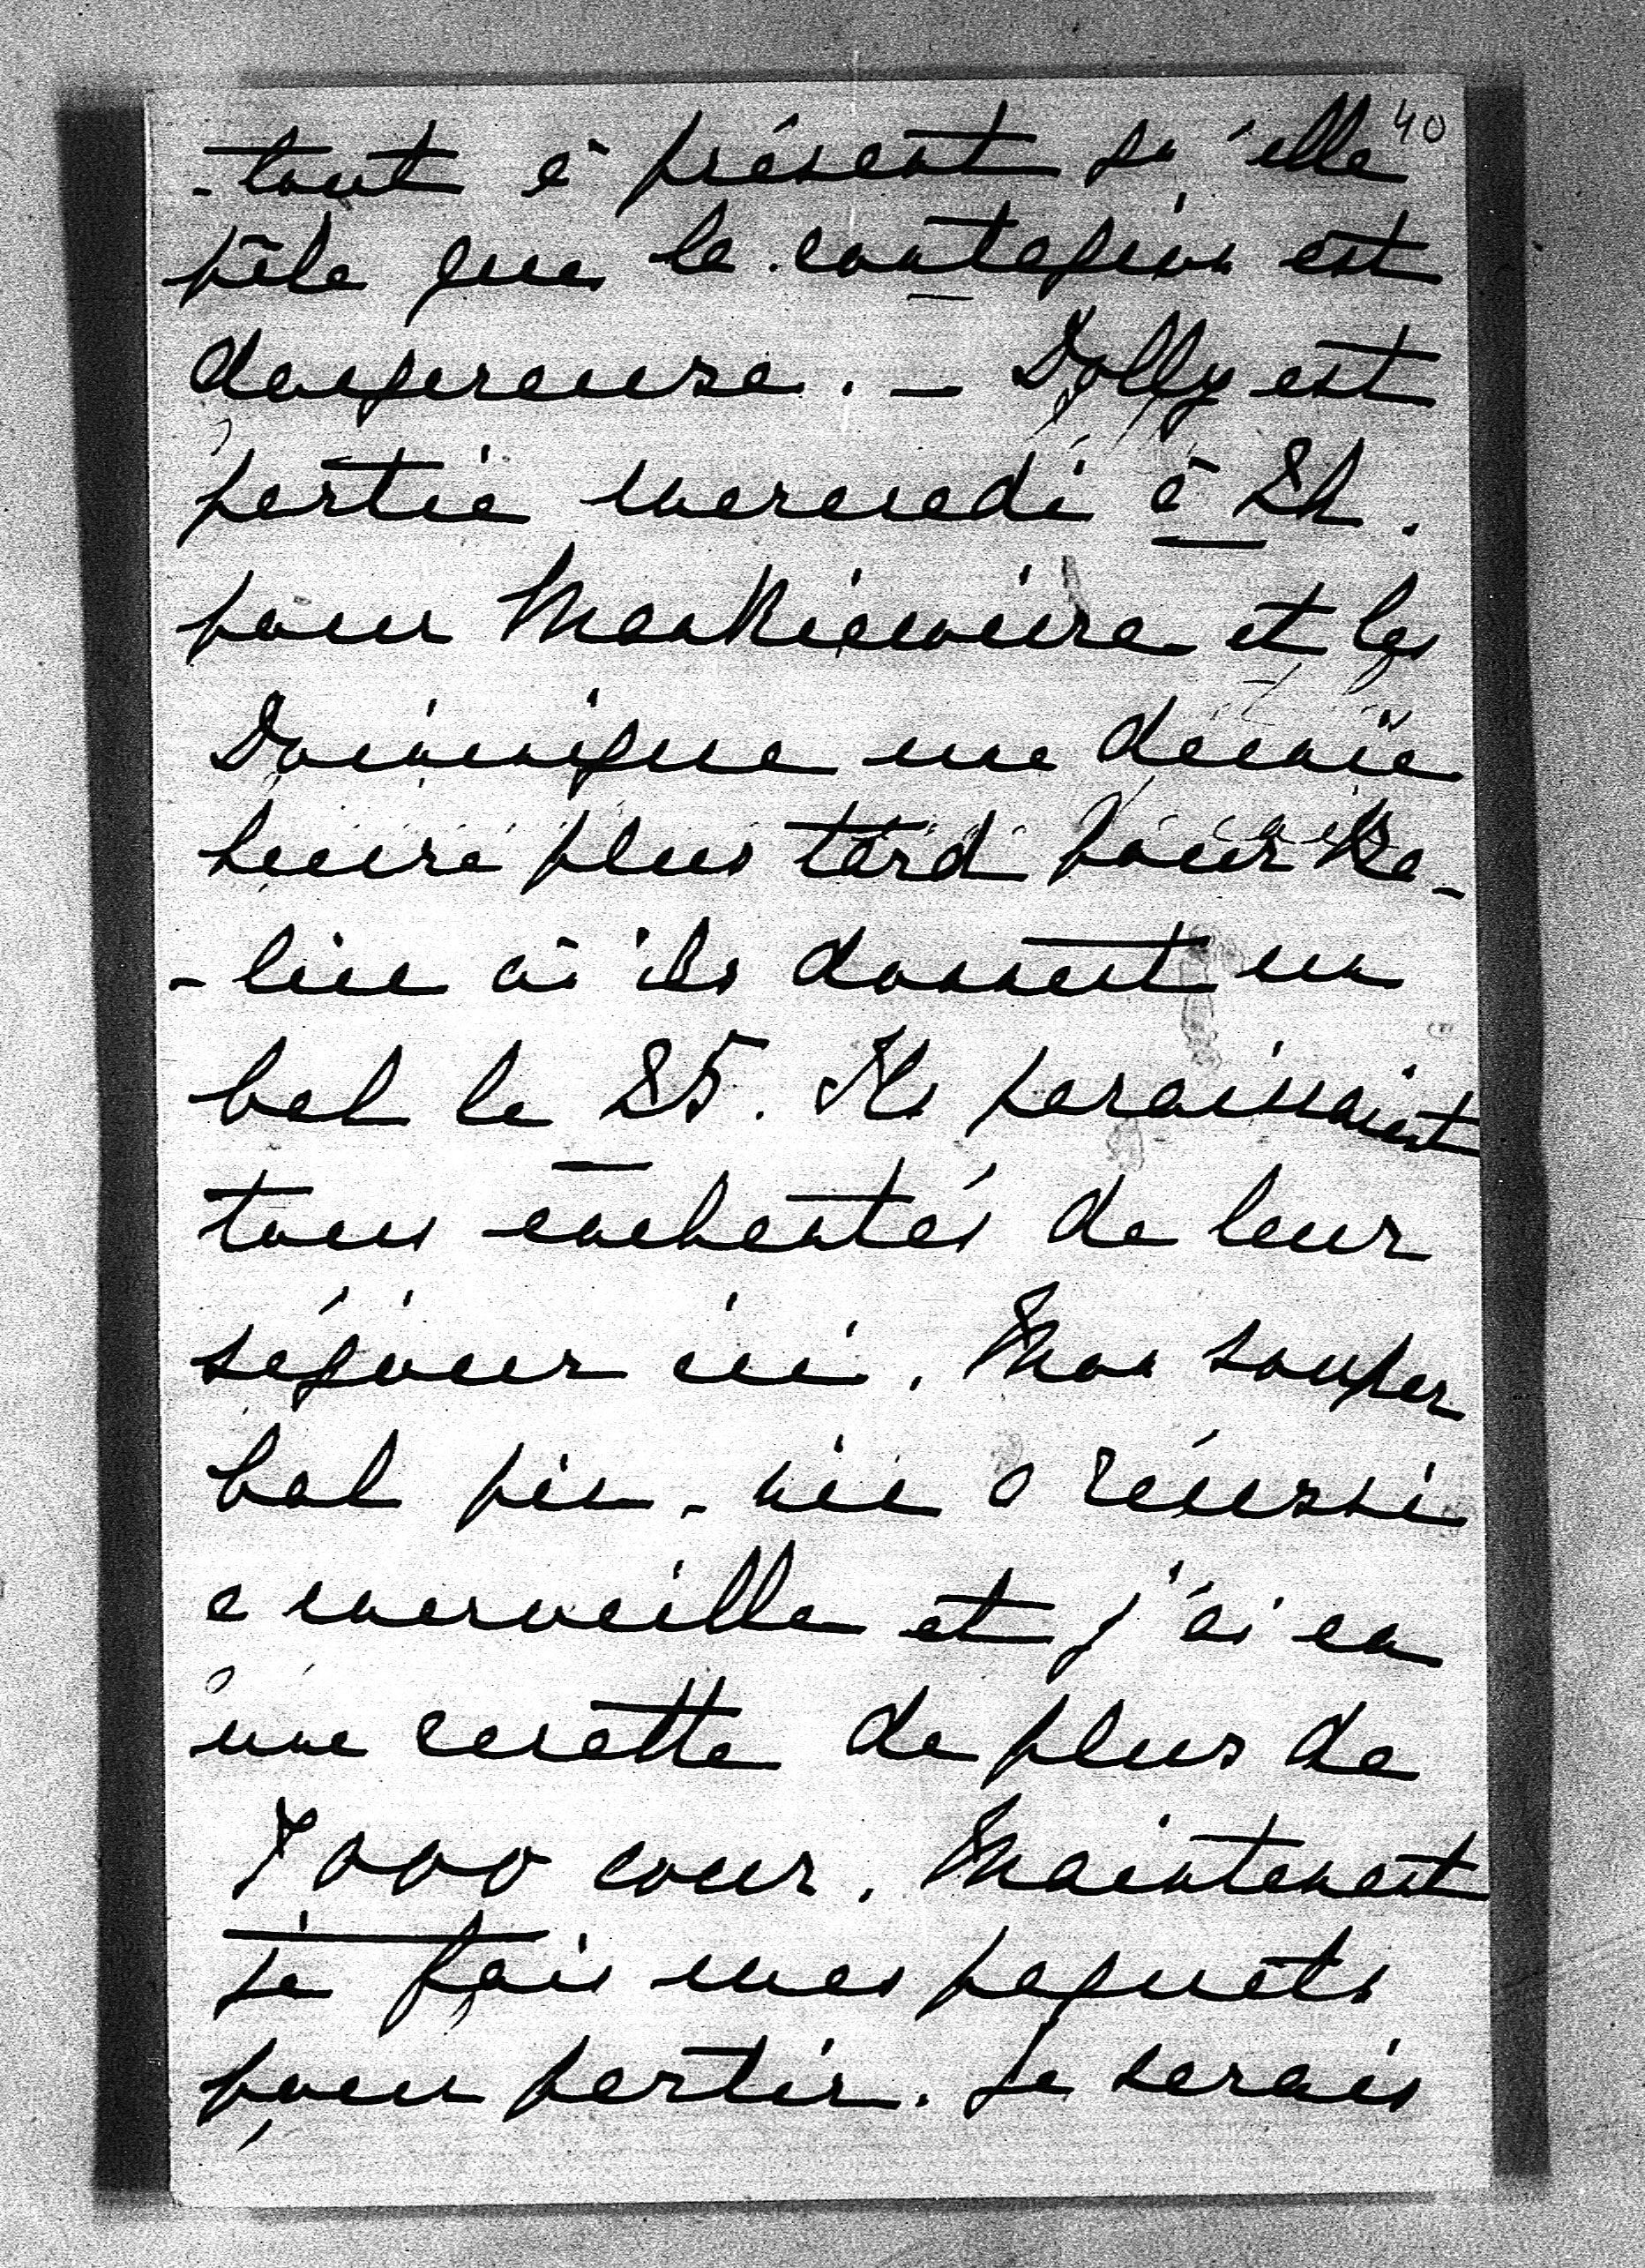 40
-tout à présent qu'elle
pèle que la contagion est
dangereuse. — Dolly est
partie mercredi à 2h.
pour Mankiewicze et les
Dominique une demie
heure plus tard pour Ka-
-lin où ils donnent un
bal le 25. Ils paraissaient
tous enchantés de leur
séjour ici. Mon souper
bal pic-nic a réussi
a merveille et j'ai eu
une recette de plus de
7000 cour. Maintenant
je fais mes paquets
pour partir. Je serais